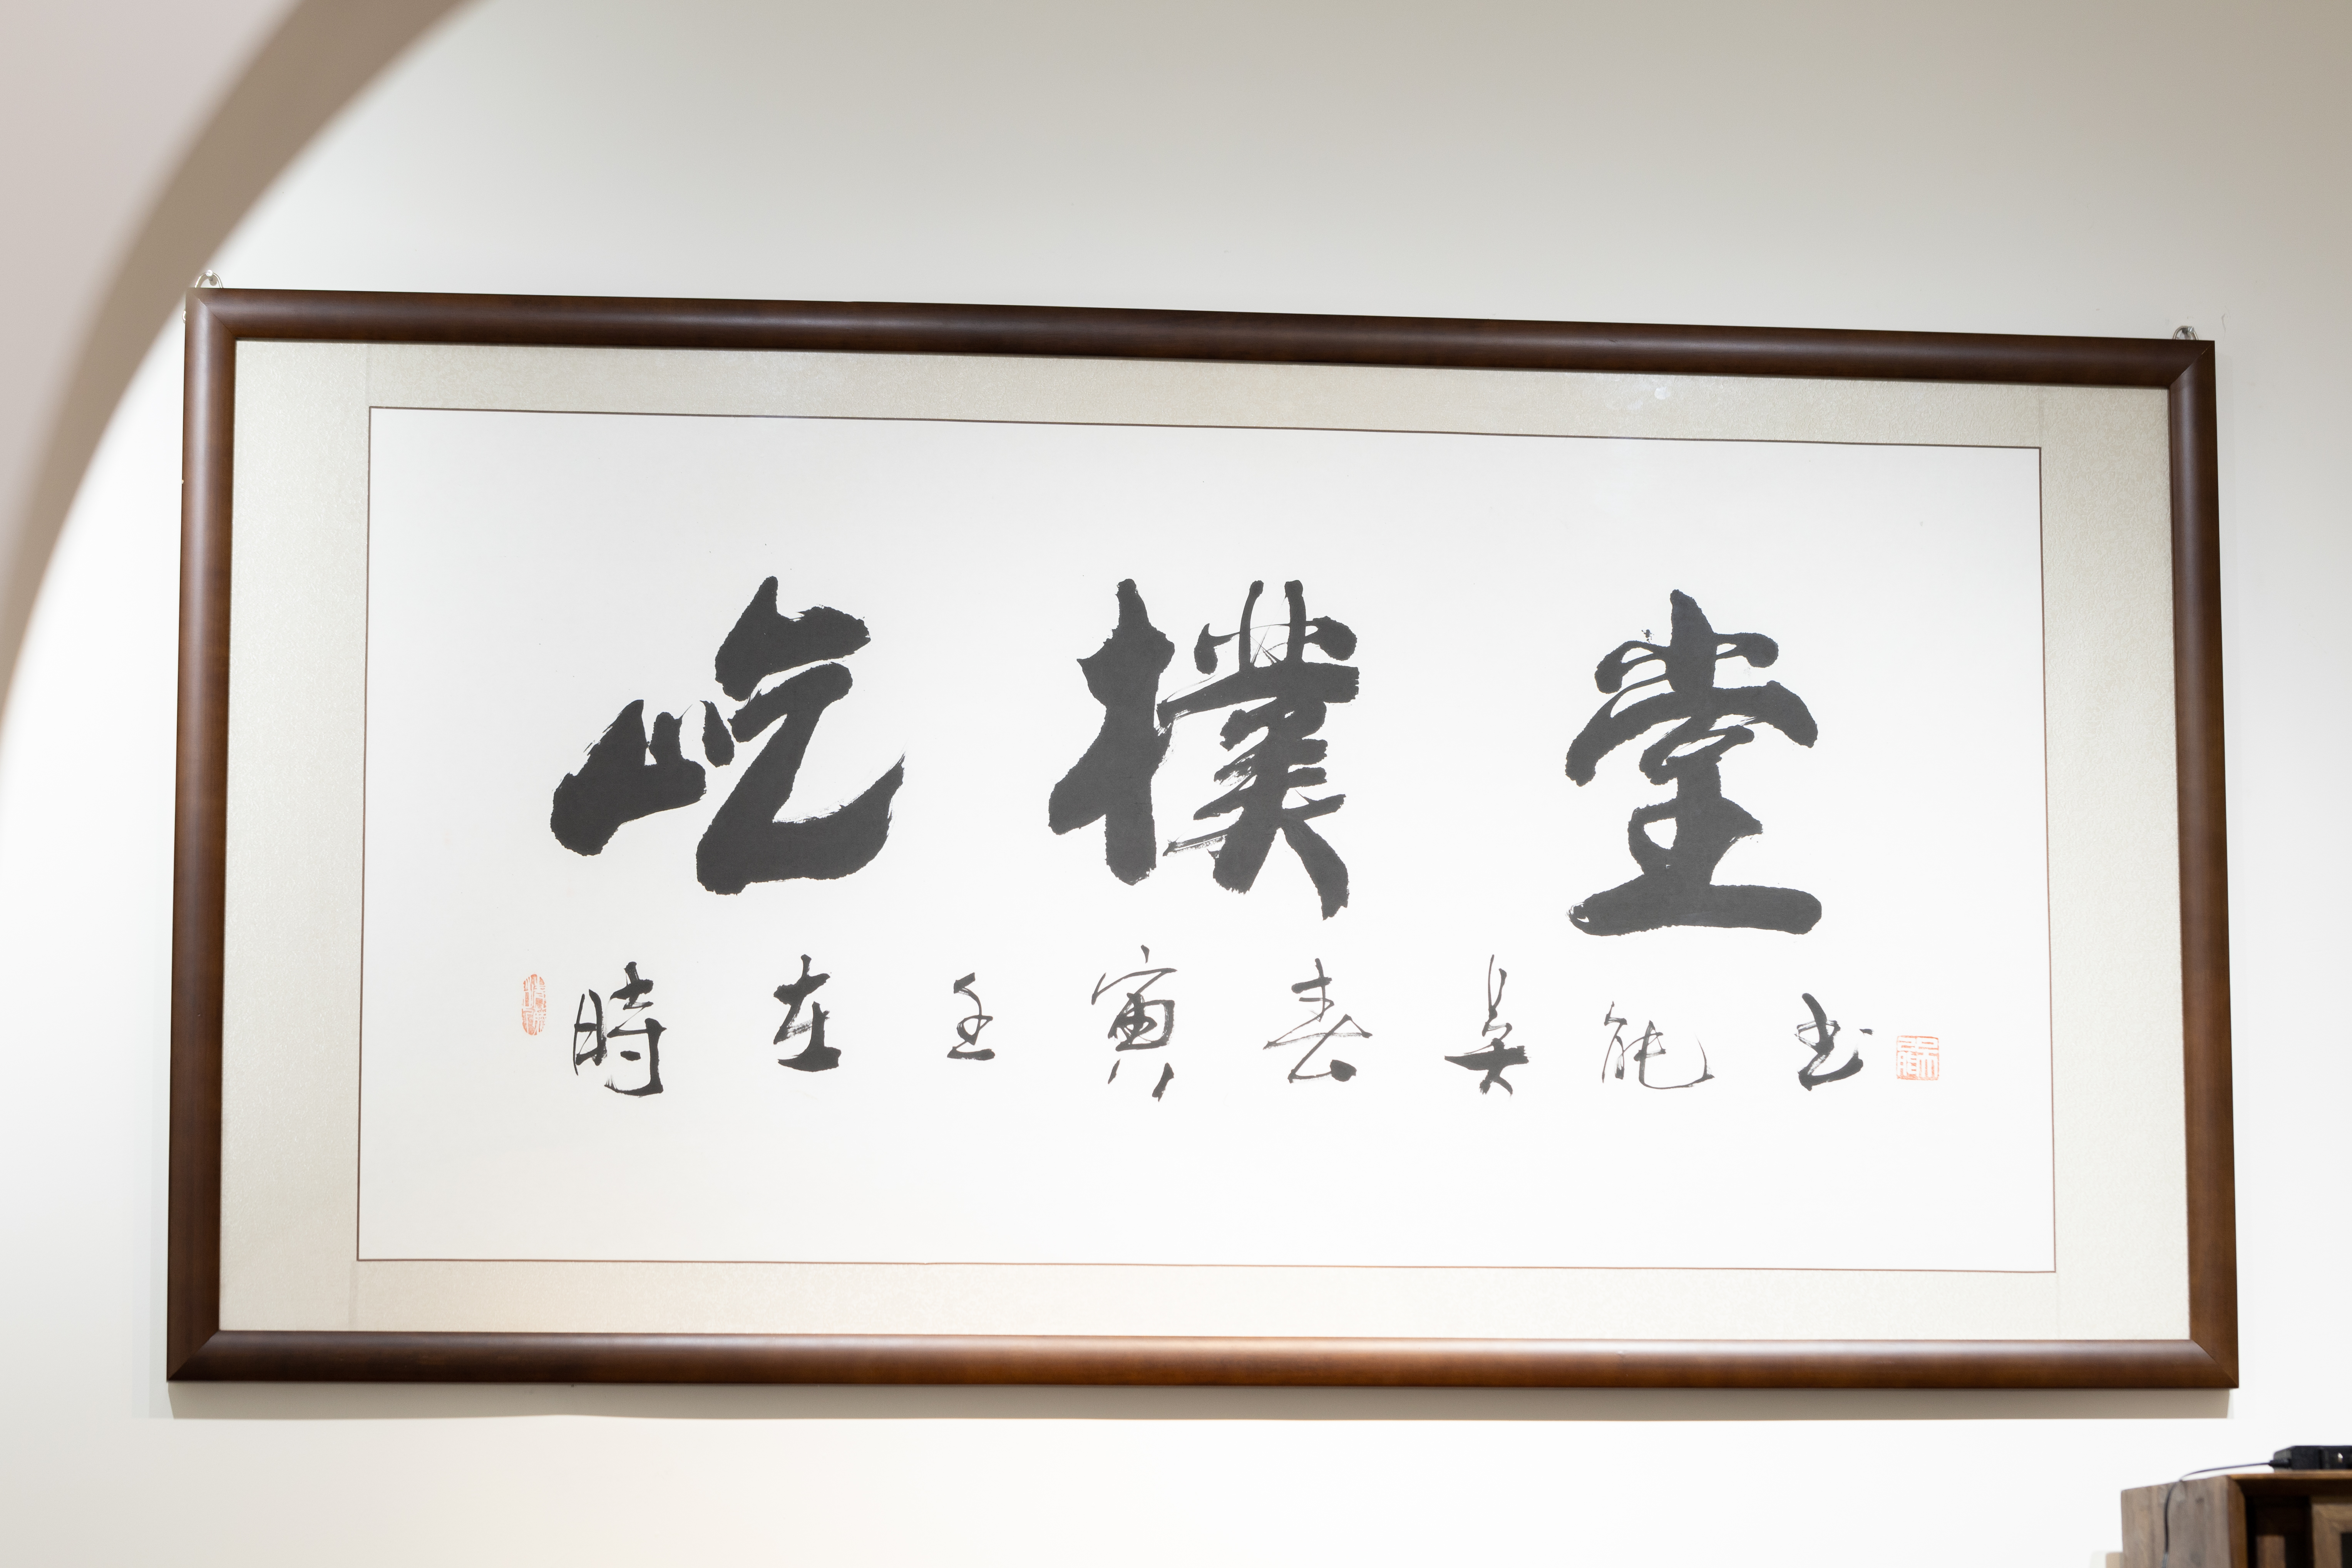 屹樸堂
時在壬寅春吳能书